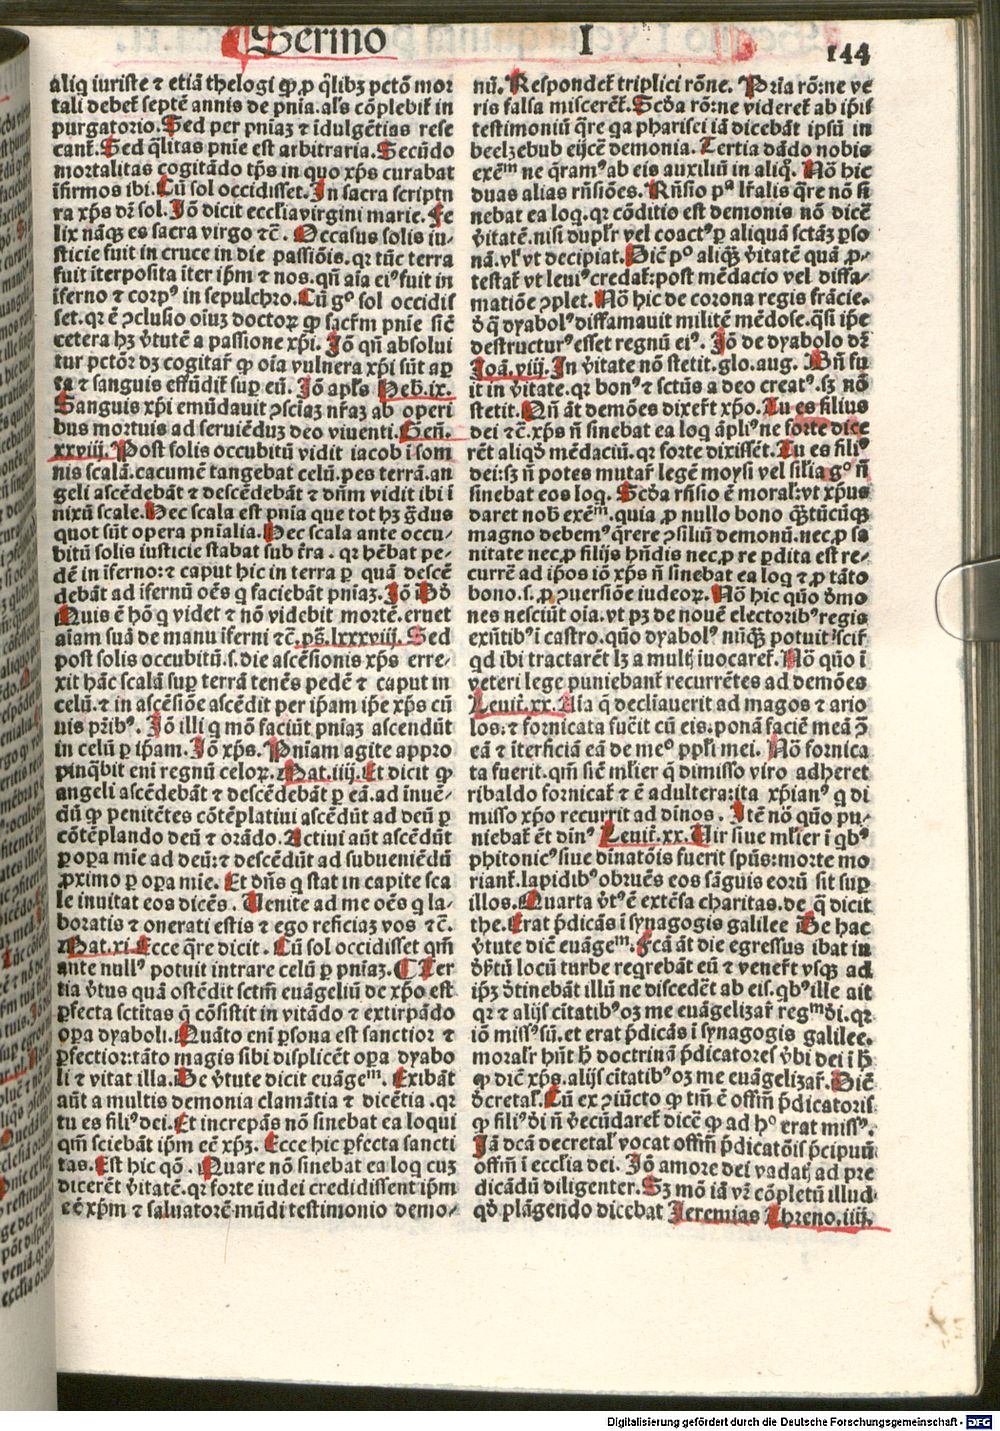 Sermo I 144
aliq iuriste ⁊ etiã thelogi ꝙ ꝓ q̃libꝫ pctõ mor
tali debet̃ septẽ annis de pñia. als cõplebit̃ in
purgatorio. Sed per pñiaꝫ ⁊ ĩdulgẽtias rese
cant̃. Sed q̃litas pñie est arbitraria. Secũdo
mortalitas cogitãdo tp̃s in quo xp̃s curabat
ĩfirmos ibi. Cũ sol occidisset. In sacra scriptu
ra xp̃s dr̃ sol. Iõ dicit ecclia virgini marie. Fe
lix nãqꝫ es sacra virgo ⁊c̃. Occasus solis iu⸗
sticie fuit in cruce in die passiõis. qꝛ tũc terra
fuit ĩterposita ĩter ip̃m ⁊ nos. qñ aĩa eiꝰ fuit in
ĩferno ⁊ corpꝰ in sepulchro. Cũ gº sol occidis
set. qꝛ ẽ ꝯclusio oĩuꝫ doctoꝝ ꝙ sacr̃m pñie siẽ
cetera hꝫ v̓tutẽ a passione xp̃i. Iõ qñ absolui
tur pctõꝛ dꝫ cogitar̃ ꝙ oĩa vulnera xp̃i sũt ap̱
ta ⁊ sanguis effũdit̃ sup̱ eũ. Iõ apl̃s Heb. ix.
Sanguis xp̃i emũdauit ꝯsciaꝫ nr̃aꝫ ab operi
bus mortuis ad seruiẽduꝫ deo viuenti. Geñ.
xxviij. Post solis occubitũ vidit iacob ĩ som
nis scalã. cacumẽ tangebat celũ. pes terrã. an
geli ascẽdebãt ⁊ descẽdebãt ⁊ dñm vidit ibi ĩ
nixũ scale. Hec scala est pñia que tot hꝫ g̃dus
quot sũt opera pñialia. Hec scala ante occu⸗
bitũ solis iusticie stabat sub t̃ra. qꝛ hẽbat pe⸗
dẽ in ĩferno: ⁊ caput hic in terra p̱ quã descẽ
debãt ad ĩfernũ oẽs q faciebãt pñiaꝫ. Iõ Dd̃
Quis ẽ hõ q videt ⁊ nõ videbit mortẽ. eruet
aĩam suã de manu ĩferni ⁊c̃. ps̃. lxxxviij. Sed
post solis occubitũ. s. die ascẽsionis xp̃s erre⸗
xit hãc scalã sup̱ terrã tenẽs pedẽ ⁊ caput in
celũ. ⁊ in ascẽsiõe ascẽdit per ip̃am ip̃e xp̃s cũ
suis pr̃ibꝰ. Iõ illi q mõ faciũt pñiaꝫ ascendũt
in celũ p̱ ip̃am. Iõ xp̃s. Pñiam agite appro
pinq̃bit eni regnũ celoꝝ. Mat. iiij. Et dicit ꝙ
angeli ascẽdebãt ⁊ descẽdebãt p̱ eã. ad ĩnuẽ⸗
dũ ꝙ penitẽtes cõtẽplatiui ascẽdũt ad deũ p̱
cõtẽplando deũ ⁊ orãdo. Actiui aũt ascẽdũt
p̱ op̱a mie ad deũ: ⁊ descẽdũt ad subueniẽdũ
ꝓximo p̱ op̱a mie. Et dñs q stat in capite sca
le inuitat eos dicẽs. Venite ad me oẽs q la⸗
boratis ⁊ onerati estis ⁊ ego reficiaꝫ vos ⁊c̃.
Mat. xi. Ecce q̃re dicit. Cũ sol occidisset qm̃
ante nullꝰ potuit intrare celũ p̱ pñiaꝫ. ¶ Ter
tia v̓tus quã ostẽdit sctm̃ euãgeliũ de xp̃o est
p̱fecta sctĩtas q̃ cõsistit in vitãdo ⁊ extirpãdo
op̱a dyaboli. Quãto eni p̱sona est sanctior ⁊
p̱fectior: tãto magis sibi displicẽt op̱a dyabo
li ⁊ vitat illa. De v̓tute dicit euãgeᵐ. Exibãt
aũt a multis demonia clamãtia ⁊ dicẽtia. qꝛ
tu es filiꝰ dei. Et increpãs nõ sinebat ea loqui
qm̃ sciebãt ip̃m eẽ xp̃ꝫ. Ecce hic p̱fecta sancti
tas. Est hic qõ. Quare nõ sinebat ea loq cuꝫ
dicerẽt v̓itatẽ. qꝛ forte iudei credidissent ip̃m
eẽ xp̃m ⁊ saluatorẽ mũdi testimonio demo⸗
nũ. Respondet̃ triplici rõne. Pria rõ: ne ve
ris falsa miscerẽt̃. Scd̃a rõ: ne videret̃ ab ip̃is
testimoniũ q̃rere qa pharisei iã dicebãt ipsũ in
beelzebub eijcẽ demonia. Tertia dãdo nobis
exẽᵐ ne q̃ramꝰ ab eis auxiliũ in aliq̃. Nõ hic
duas alias rñsiões. Rñsio pª lr̃alis q̃re nõ si
nebat ea loq. qꝛ cõditio est demonis nõ dicẽ
v̓itatẽ. nisi duplr̃ vel coactꝰ p̱ aliquã sctãꝫ p̱so
nã. vl̓ vt decipiat. Dicẽ pº aliq̃ꝫ v̓itatẽ quã ꝓ⸗
testat̃ vt leuiꝰ credat̃: post mẽdacio vel diffa⸗
matiõe ꝯplet. Nõ hic de corona regis frãcie.
d̓ q̃ dyabolꝰ diffamauit militẽ mẽdose. q̃si ip̃e
destructurꝰ esset regnũ eiꝰ. Iõ de dyabolo dr̃
Ioã. viij. In v̓itate nõ stetit. glo. aug. Bñ fu
it in v̓itate. qꝛ bonꝰ ⁊ sctũs a deo creatꝰ. sꝫ nõ
stetit. Qñ ãt demões dixert̃ xp̃o. Tu es filius
dei ⁊c̃. xp̃s ñ sinebat ea loq ãpliꝰ ne forte dice
rẽt aliqd̓ mẽdaciũ. qꝛ forte dixissẽt. Tu es filiꝰ
dei: sꝫ ñ potes mutar̃ legẽ moysi vel silia gº ñ
sinebat eos loq. Scd̃a rñsio ẽ moral̓: vt xp̃us
daret nob̓ exẽᵐ. quia ꝓ nullo bono q̃ꝫtũcũqꝫ
magno debemꝰ q̃rere ꝯsiliũ demonũ. nec ꝓ sa
nitate nec ꝓ filijs hñdis nec ꝓ re p̱dita est re⸗
currẽ ad ip̃os iõ xp̃s ñ sinebat ea loq ⁊ ꝓ tãto
bono. s. ꝓ ꝯuersiõe iudeoꝝ. Nõ hic quõ d̓mo
nes nesciũt oĩa. vt pꝫ de nouẽ electoribꝰ regis
exñtibꝰ ĩ castro. quõ dyabolꝰ nũq̃ꝫ potuit scit̃
qd ibi tractarẽt lꝫ a multꝭ ĩuocaret̃. Nõ quõ ĩ
veteri lege puniebant̃ recurrẽtes ad demões
Leuit̃. xx. Aia q̃ decliauerit ad magos ⁊ ario
los: ⁊ fornicata fuẽit cũ eis. ponã faciẽ meã ꝯ̃
eã ⁊ ĩterficiã eã de meº ppl̃i mei. Nõ fornica
ta fuerit. qm̃ siẽ ml̓ier q̃ dimisso viro adheret
ribaldo fornicat̃ ⁊ ẽ adultera: ita xp̃ianꝰ q di
misso xp̃o recurrit ad d̃inos. Itẽ nõ quõ pu⸗
niebat̃ ẽt d̃inꝰ Leuit̃. xx. Vir siue ml̓ier ĩ qbꝰ
phitonicꝰ siue d̃inatõis fuerit spũs: morte mo
riant̃. lapidibꝰ obruẽs eos sãguis eorũ sit sup̱
illos. Quarta v̓tꝰ ẽ extẽsa charitas. de q̃ dicit
the. Erat p̃dicãs ĩ synagogis galilee De hac
v̓tute dicẽ euãgeᵐ. Fcã ãt die egressus ibat in
d̓s̃tũ locũ turbe reqrebãt eũ ⁊ venert̃ vsqꝫ ad
ip̃ꝫ d̓tinebãt illũ ne discedẽt ab eis. qbꝰ ille ait
qꝛ ⁊ alijs ciuitatibꝰ oꝫ me euãgelizar̃ regᵐ d̓i. qꝛ
iõ missꝰ sũ. et erat p̃dicãs ĩ synagogis galilee.
moralr̃ hũt h̓ doctrinã p̃dicatores v̓bi dei ĩ h̓
ꝙ dicẽ xp̃s. alijs ciuitatibꝰ oꝫ me euãgelizar̃. Dicẽ
d̓cretal̓. Cũ ex ꝯiũcto ꝙ tm̃ ẽ offm̃ p̃dicatoris.
ꝙ filiꝰ d̓i ñ v̓ecũdaret̃ dicẽ ꝙ ad hº erat missꝰ.
Iã dcã decretal̓ vocat offm̃ p̃dicatõis p̃cipuũ
offm̃ ĩ ecclia dei. Iõ amore dei vadatꝭ ad pre
dicãdũ diligenter. Sꝫ mõ iã vr̃ cõpletũ illud
qd̓ plãgendo dicebat Jeremias Threno. iiij.
Digitalisierung gefördert durch die Deutsche Forschungsgemeinschaft - DFG